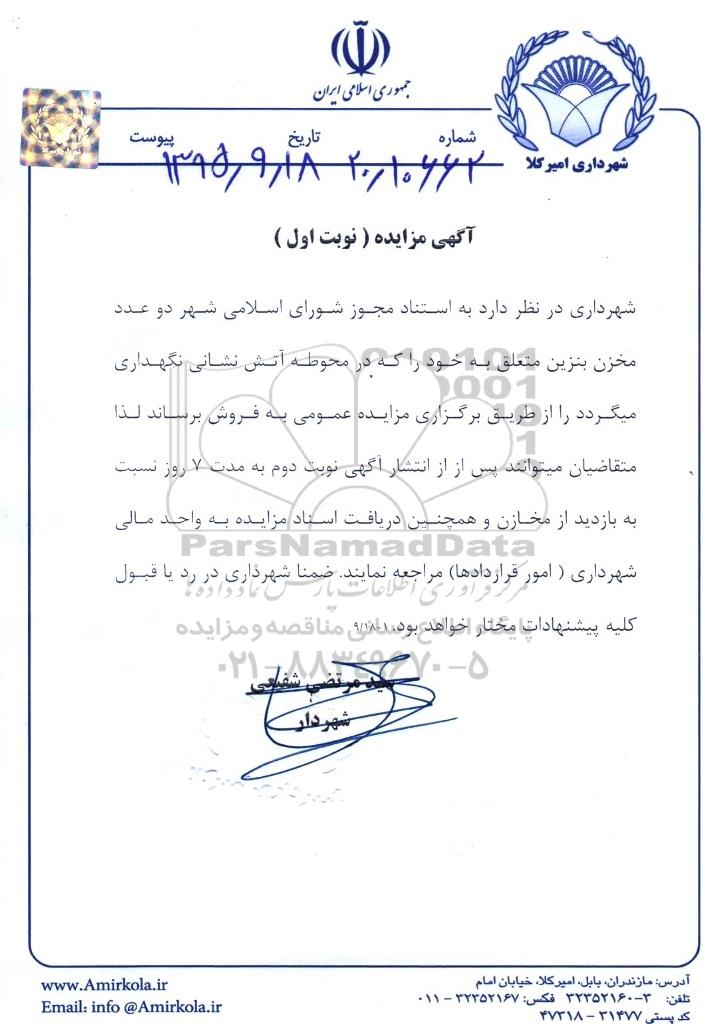 جمهوری اسلامی ایران
شهرداری امیرکلا
شماره تاریخ پیوست
۲۰/۱۰۶۶۲ ۱۳۹۵/۹/۱۸
آگهی مزایده ( نوبت اول )
شهرداری در نظر دارد به استناد مجوز شورای اسلامی شهر دو عدد
مخزن بنزین متعلق به خود را که در محوطه آتش نشانی نگهداری
میگردد را از طریق برگزاری مزایده عمومی به فروش برساند لذا
متقاضیان میتوانند پس از از انتشار آگهی نوبت دوم به مدت ۷ روز نسبت
به بازدید از مخازن و همچنین دریافت اسناد مزایده به واحد مالی
شهرداری ( امور قراردادها) مراجعه نمایند. ضمنا شهرداری در رد یا قبول
کلیه پیشنهادات مختار خواهد بود. ۹/۱۸-۱
ParsNamadData
مرکز فرآوری اطلاعات پارس نماد داده ها
پایگاه اطلاع رسانی مناقصه و مزایده
۰۲۱-۸۸۳۴۹۶۷۰-۵
سید مرتضی شفیعی
شهردار
آدرس: مازندران، بابل، امیرکلا، خیابان امام
تلفن: ۳-۳۲۳۵۲۱۶۰ فکس: ۳۲۳۵۲۱۶۷ - ۰۱۱
کد پستی ۳۱۴۷۷ - ۴۷۳۱۸
www.Amirkola.ir
Email: info @Amirkola.ir